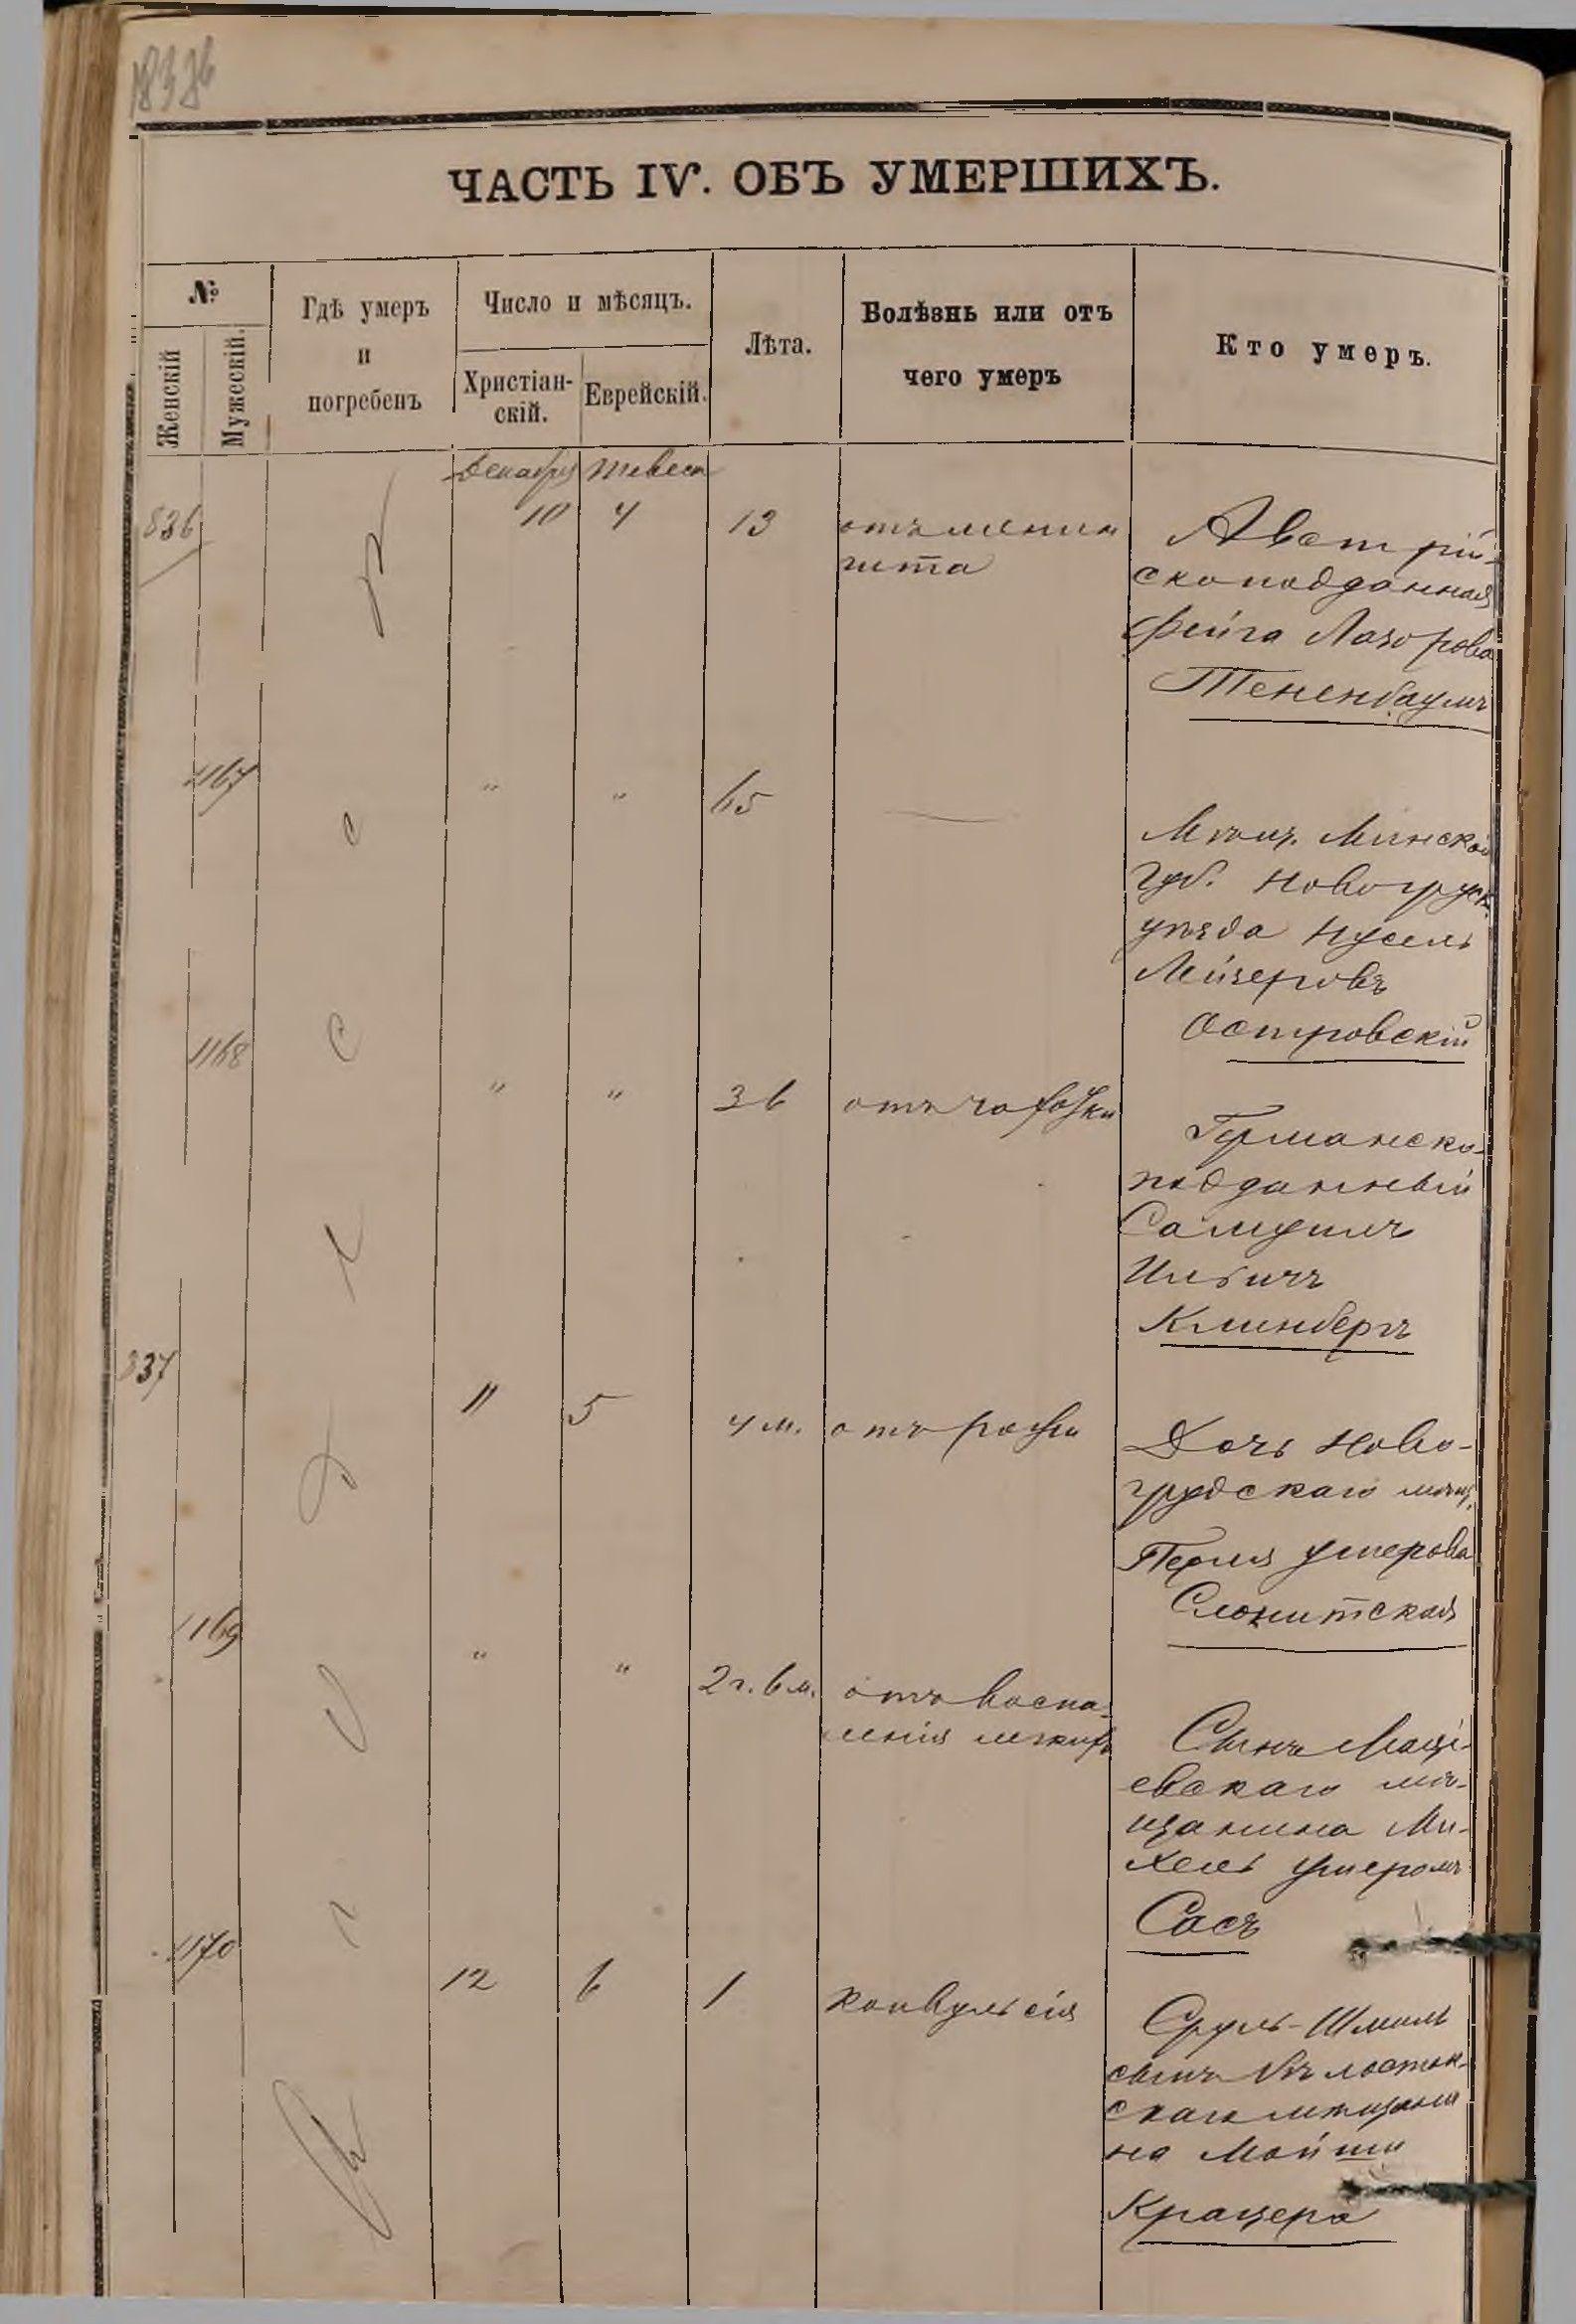 ЧАСТЬ IV. ОБЪ УМЕРШИХЪ.
№
Женскій
Мужескій.
Гдѣ умеръ
и
погребенъ
Число и мѣсяцъ.
Христіан-
скій.
Еврейскій.
Лѣта.
Болѣзнь или отъ
чего умеръ
Кто умеръ.
Декабря Тевеса
836 10 4 13 отъ менин
гита
Австрій-
скоподданная
Фейга Лазорова
Тененбаумъ
1167 " " 65
Мѣщ. Минской
губ. Новогруск.
уѣзда Нусель
Лейзеровъ
Островскій
1168 " " 36 отъ чахотки
Германско-
подданный
Самуилъ
Ильичъ
Клинбергъ
837 11 5 4 м. отъ рожи
Дочь Ново-
грудскаго мѣщ.
Перля Умерова
Слонимская
1169 " " 2 г. 6 м. отъ воспа-
ленія легкихъ
Сынъ
евскаго мѣ-
щанина Ми-
хель
Сасъ
1170 12 6 1 конвульсія
Сруль-Шмиль
сынъ Бѣлосток-
скаго мѣщани
на Мойши
Крацера